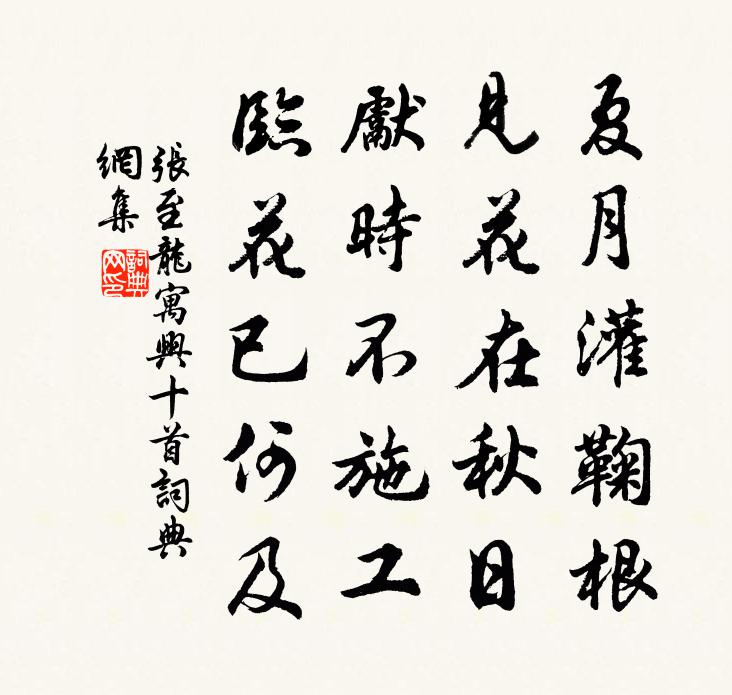 夏月灌鞠根
見花在秋日
獻時不施工
臨花已何及
張至龍寓興十首詞典
網集
詞典
网印